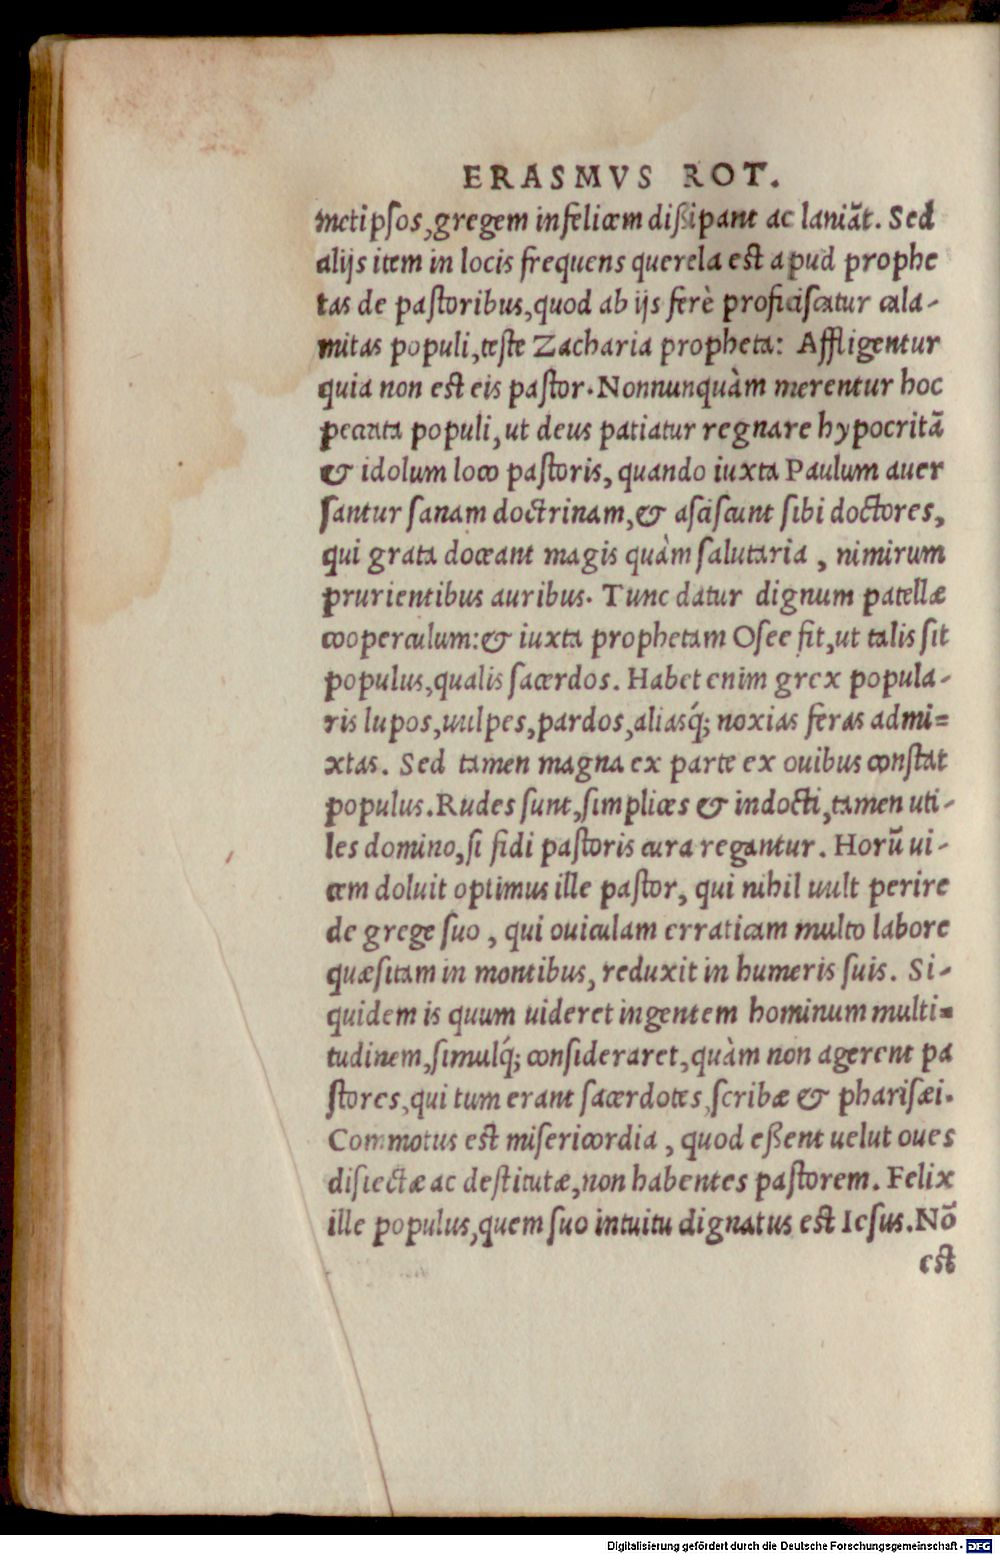 ERASMVS ROT.
metipsos, gregem infelicem dißipant ac laniãt. Sed
alijs item in locis frequens querela est apud prophe
tas de pastoribus, quod ab ijs ferè proficiscatur cala-
mitas populi, teste Zacharia propheta: Affligentur
quia non est eis pastor. Nonnunquàm merentur hoc
peccata populi, ut deus patiatur regnare hypocritã
& idolum loco pastoris, quando iuxta Paulum auer
santur sanam doctrinam, & asciscunt sibi doctores,
qui grata doceant magis quàm salutaria, nimirum
prurientibus auribus. Tunc datur dignum patellæ
cooperculum: & iuxta prophetam Osee fit, ut talis sit
populus, qualis sacerdos. Habet enim grex popula-
ris lupos, uulpes, pardos, aliasq́; noxias feras admi=
xtas. Sed tamen magna ex parte ex ouibus constat
populus. Rudes sunt, simplices & indocti, tamen uti-
les domino, si fidi pastoris cura regantur. Horũ ui-
cem doluit optimus ille pastor, qui nihil uult perire
de grege suo, qui ouiculam erraticam multo labore
quæsitam in montibus, reduxit in humeris suis. Si-
quidem is quum uideret ingentem hominum multi=
tudinem, simulq́; consideraret, quàm non agerent pa
stores, qui tum erant sacerdotes, scribæ & pharisæi.
Commotus est misericordia, quod eßent uelut oues
disiectæ ac destitutæ, non habentes pastorem. Felix
ille populus, quem suo intuitu dignatus est Iesus. Nõ
est
Digitalisierung gefördert durch die Deutsche Forschungsgemeinschaft - DFG